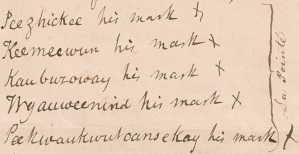 Peezhickee his mark x
Keemeewun his mark x
Kaubuzoway his mark x
Wyauweenind his mark x
Peekwaukwutoansekay his mark x
La Pointe